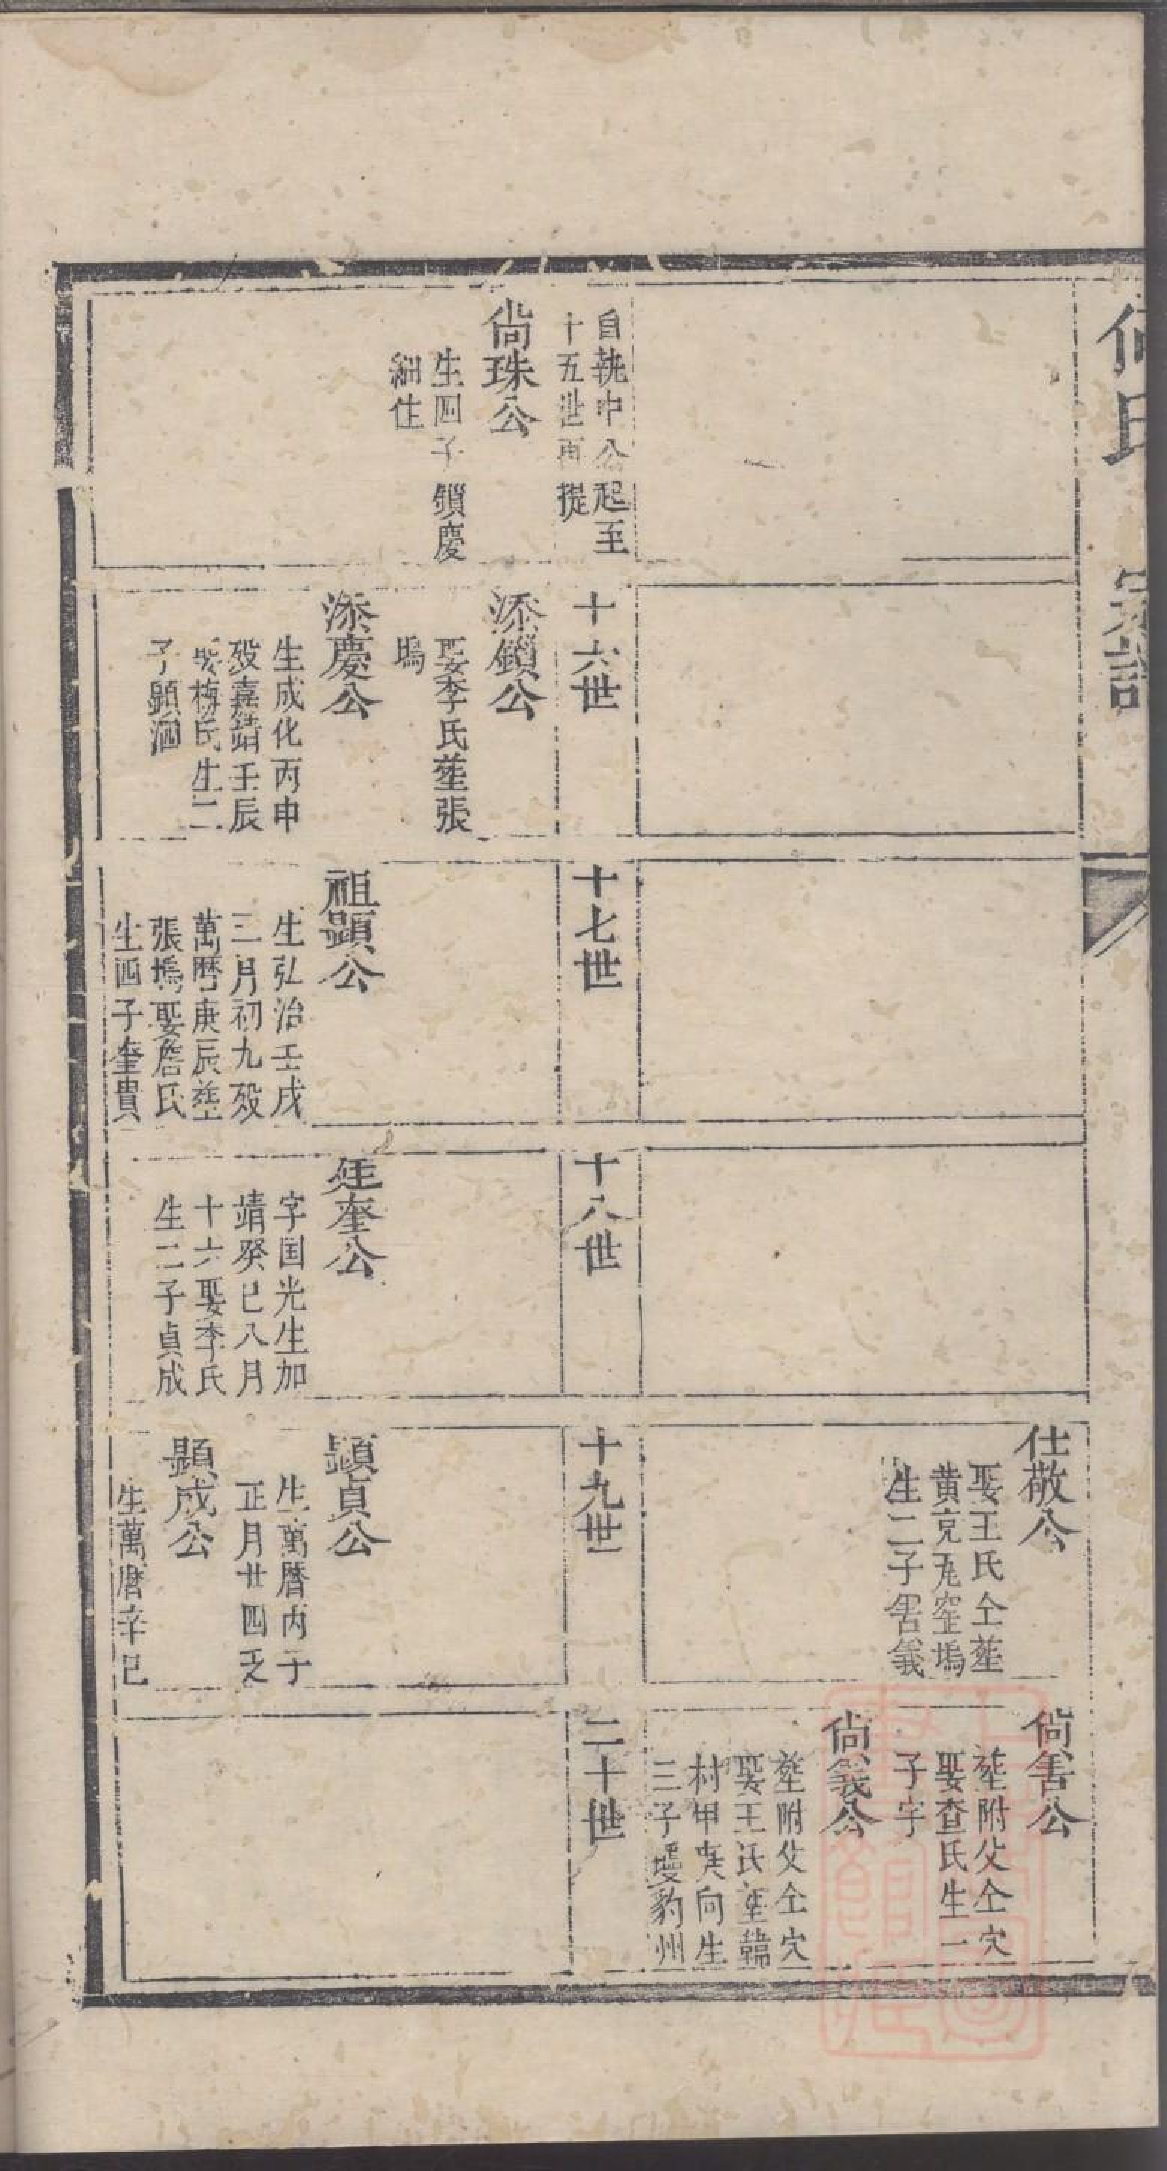 何氏
宗譜
仕敬公
娶王氏仝塟
黄荆瓦窑塢
生二子害義
尙害公
塟附父仝穴
娶查氏生一
子字
尙義公
塟附父仝穴
娶王氏塟韓
村甲庚向生
三子墁豹州
自執中公起至
十五世再提
尙珠公
生四子鎖慶
細住
十六世
添鎖公
娶李氏塟張
塢
添慶公
生成化丙申
殁嘉靖壬辰
娶梅氏生二
子顕洄
十七世
祖顕公
生弘治壬戌
二月初九殁
萬曆庚辰塟
張塢娶詹氏
生四子奎貴
十八世
廷奎公
字国光生加
靖癸巳八月
十六娶李氏
生二子貞成
十九世
顕貞公
生萬曆丙子
正月廿四
顕成公
生萬曆辛巳
二十世